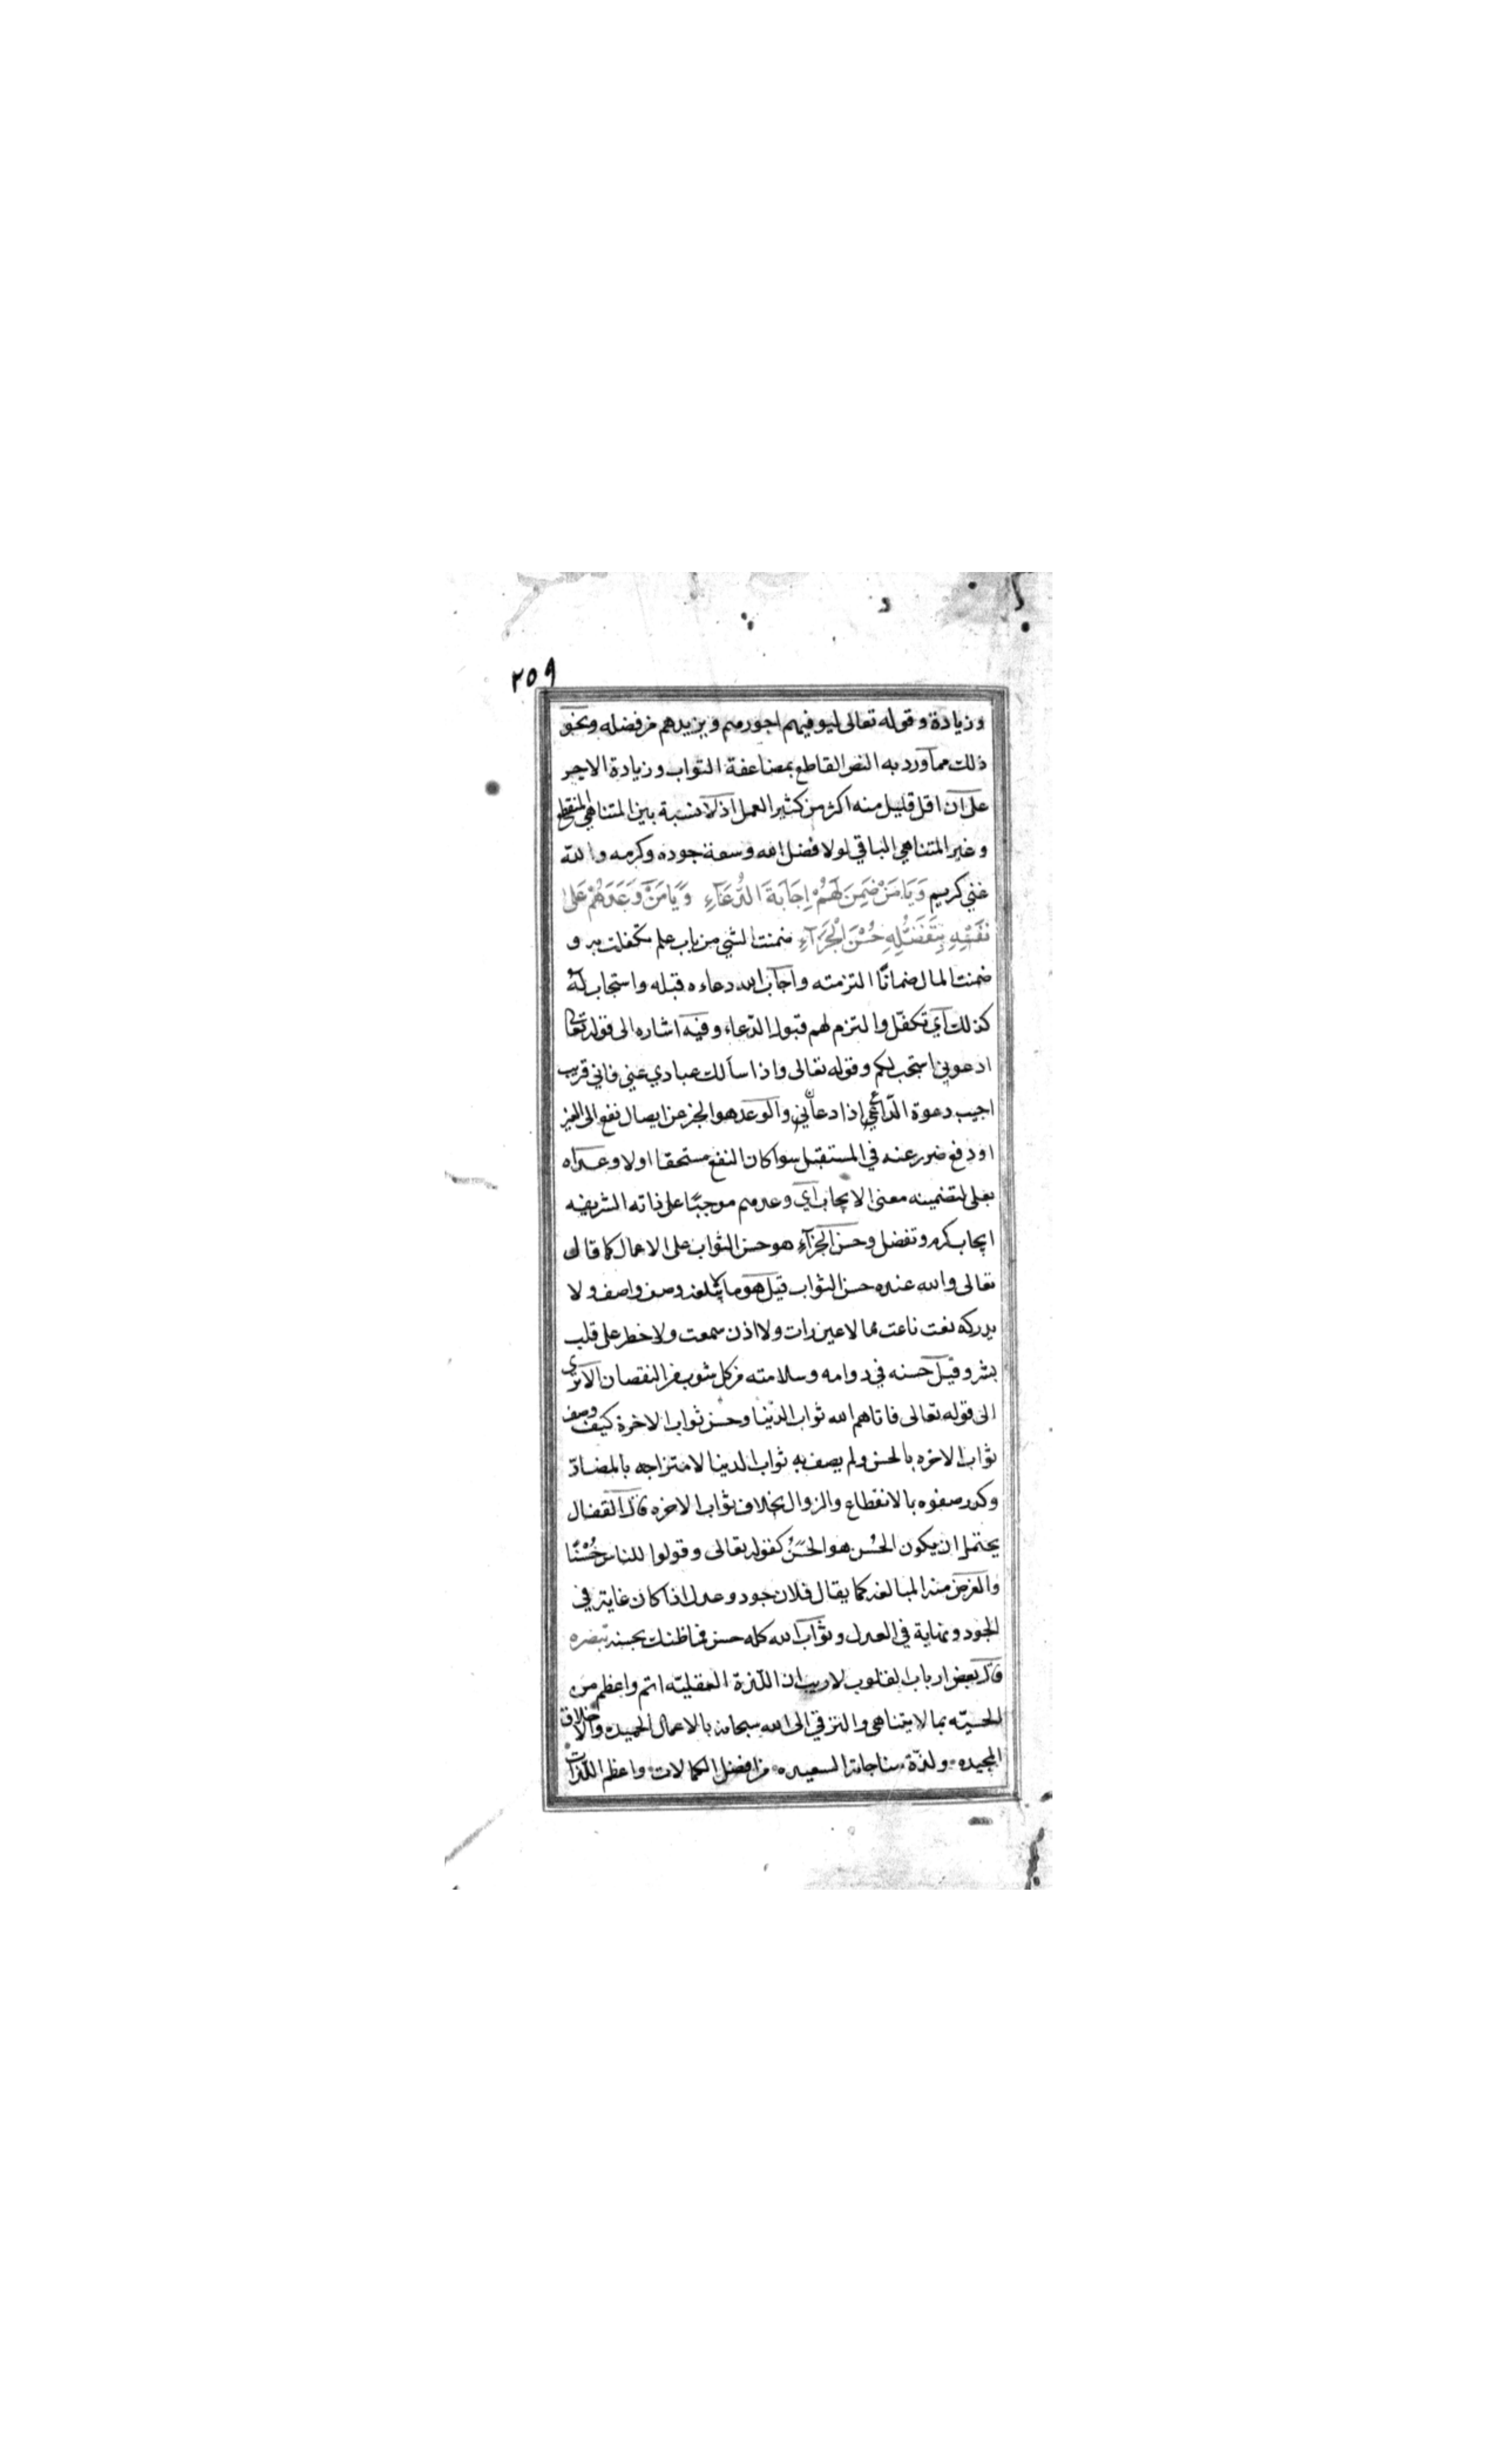 ٢٥٩
وزيادة وقوله تعالى ليوفيهم اجورهم ويزيدهم من فضله ونحو
ذلك مما ورد به النص القاطع بمضاعفة الثواب وزيادة الاجر
على ان اقل قليل منه اكثر من كثير العمل اذ لا نسبة بين المتناهي المنقطع
وغير المتناهي الباقي لولا فضل الله وسعة جوده وكرمه والله
غني كريم وَيَا مَنْ ضَمِنَ لَهُمْ اِجَابَةَ الدُّعَآءِ وَيَا مَنْ وَعَدَهُمْ عَلى
نَفْسِهِ بِتَفَضُّلِهِ حُسْنَ الْجَزَآءِ ضمنت الشي من باب علم تكفلت به و
ضمنت المال ضمانًا التزمته واجاب الله دعاءه قبله واستجاب لهُ
كذلك اي تكفّل والتزم لهم قبول الدّعاء وفيه اشاره الى قوله تعالى
ادعوني استجب لكم وقوله تعالى واذا سألك عبادي عني فاني قريب
اجيب دعوة الدّاعي اذا دعاني والوعد هو الخبر عن ايصال نفع الى الغير
او دفع ضرر عنه في المستقبل سوا كان النفع مستحقا اولا وعداه
بعلى لتضمينه معنى الايجاب اي وعدهم موجبًا على ذاته الشريفه
ايجاب كرم وتفضل وحسن الجزآءِ هو حسن الثواب على الاعمال كما قال
تعالى والله عنده حسن الثواب قيل هو ما لا يبلغه وصف واصف ولا
يدركه نعت ناعت مما لا عين رات ولا اذن سمعت ولا خطر على قلب
بشر وقيل حسنه في دوامه وسلامته من كل شوب من النقصان الا ترى
الى قوله تعالى فاتاهم الله ثواب الدّنيا وحسن ثواب الاخرة كيف وصف
ثواب الاخره بالحسن ولم يصف به ثواب الدنيا لامتزاجه بالمضادّ
وكدر صفوه بالانقطاع والزوال بخلاف ثواب الاخره قال القفال
يحتمل ان يكون الحُسن هو الحَسَنُ كقوله تعالى وقولوا للناس حُسْنًا
والغرض منه المبالغه كما يقال فلان جود وعدل اذا كان غاية في
الجود ونهاية في العدل وثواب الله كله حسن فما ظنك بحسنه تبصره
قال بعض ارباب القلوب لا ريب ان اللّذة العقليّه اتم واعظم من
الحسيّه بما لا يتناهى والترقي الى الله سبحانه بالاعمال الحميده والاخلاق
المجيده ولذّة مناجاته السعيده من افضل الكمالات واعظم اللّذات